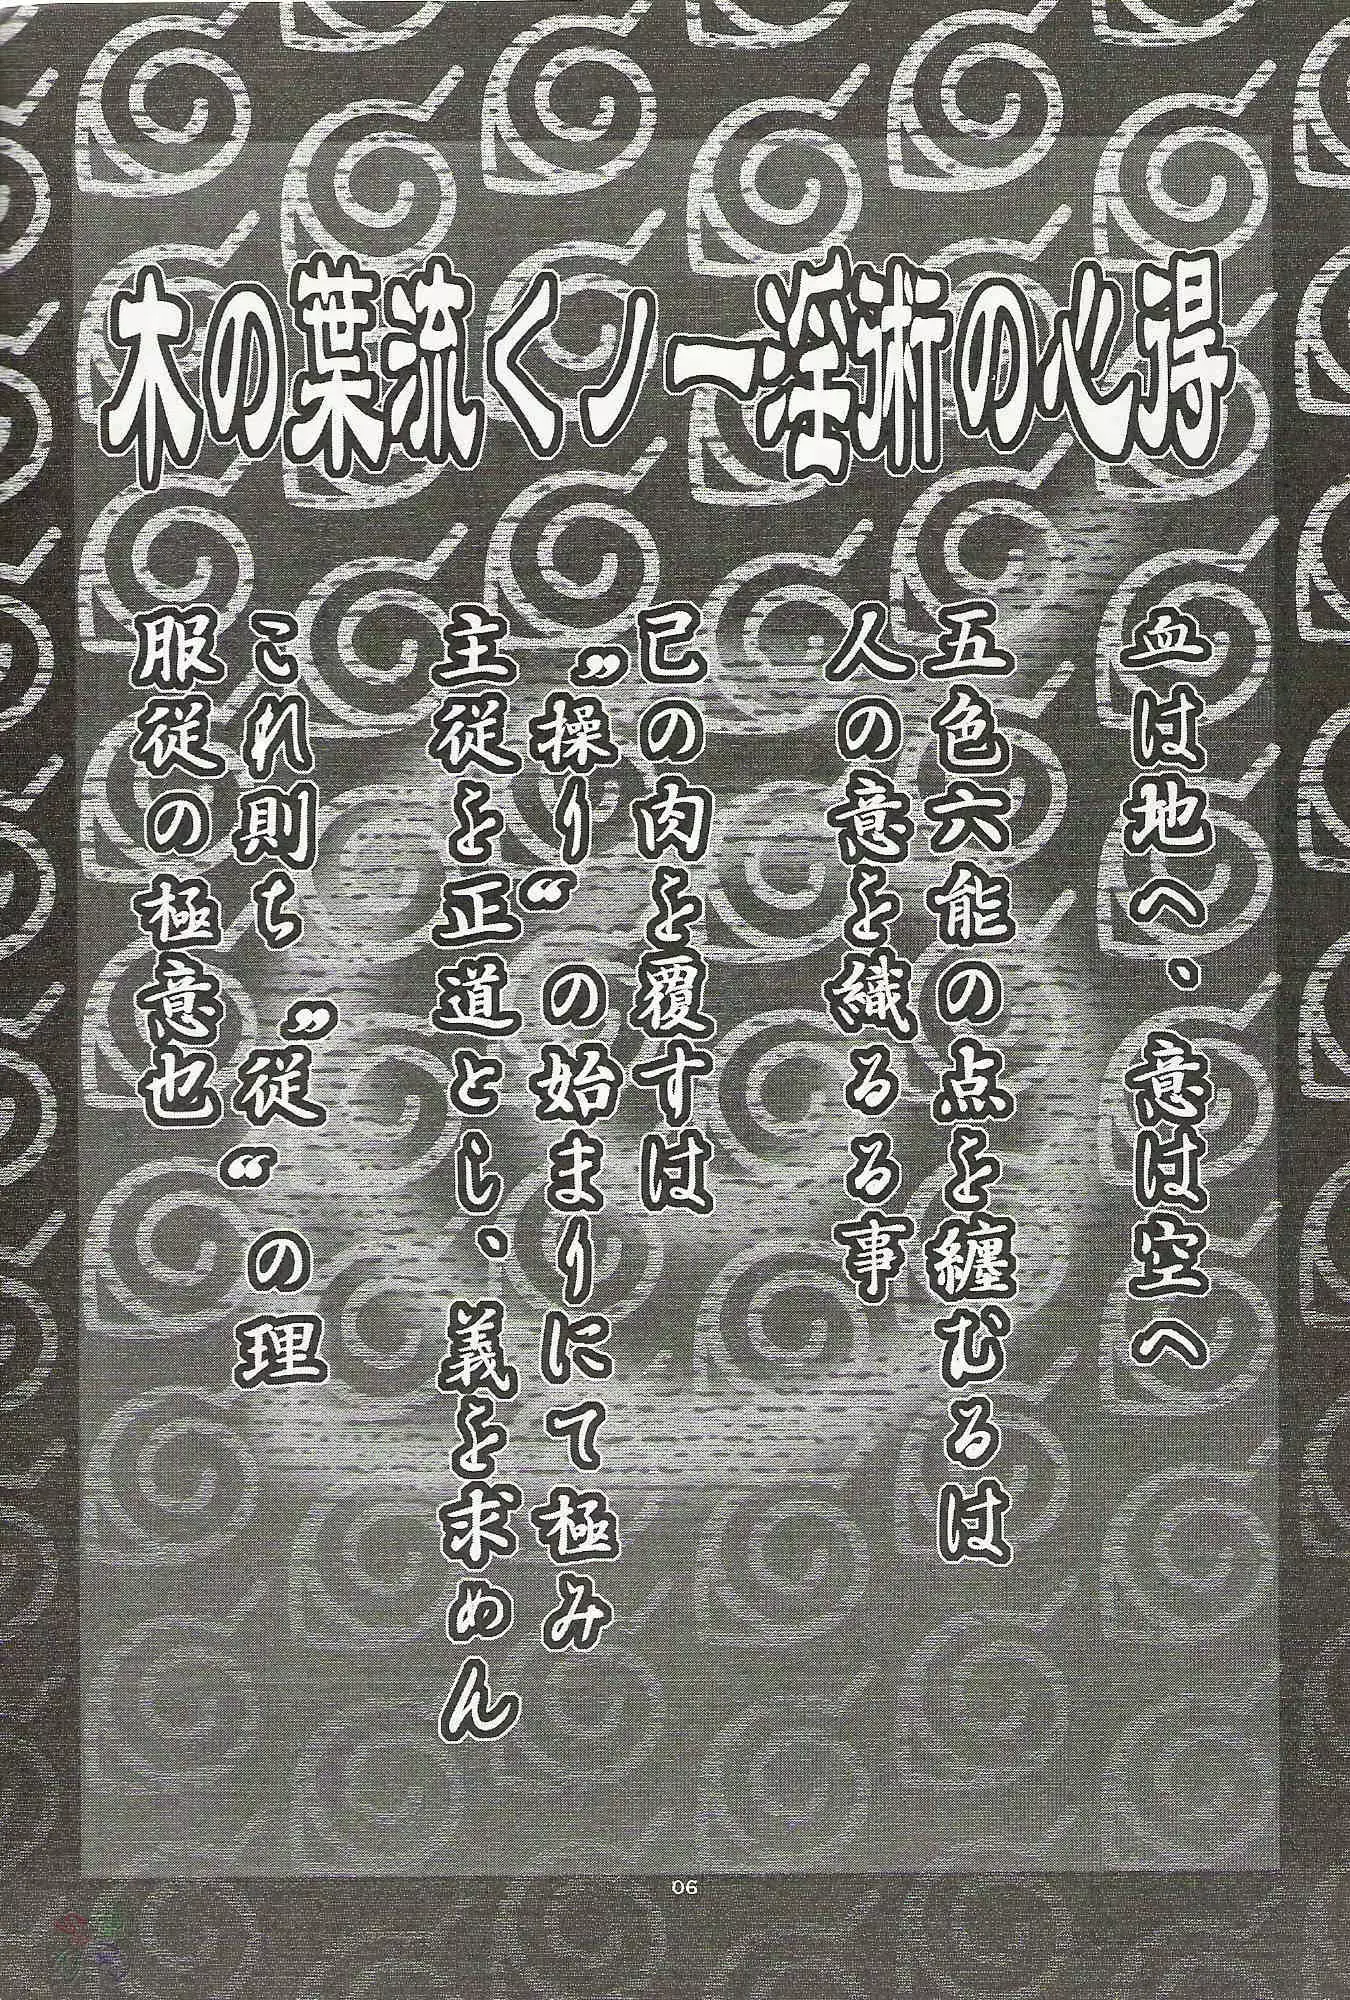 木の葉流くノ一淫術の心得
血は地へ、意は空へ
五色六能の点を纏むるは
人の意を織る事
己の肉を覆すは
”操り“の始まりにて極み
主従を正道とし、義を求めん
これ則ち”従“の理
服従の極意也
06